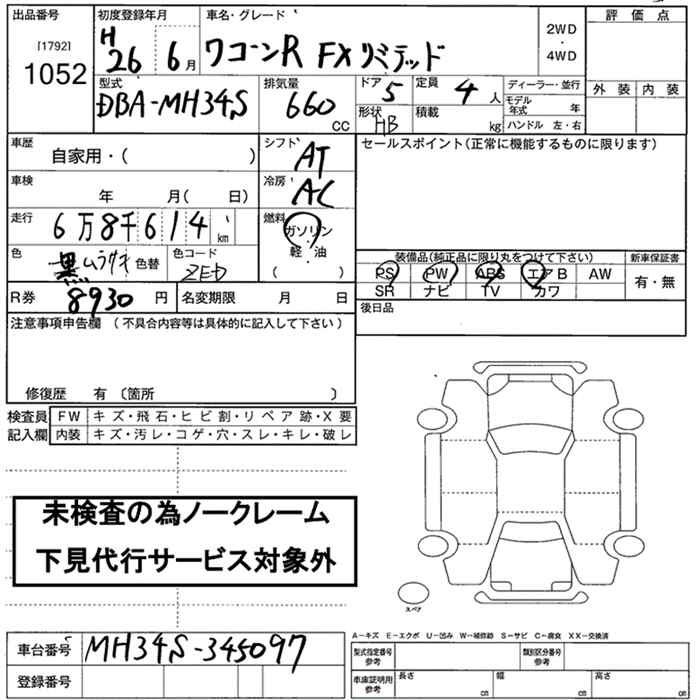 出品番号 初度登録年月 車名・グレード 評価点
[1792]
1052
H 26 6月 ワゴンR FXリミテッド 2WD・4WD
外装 内装
型式 DBA-MH34S 排気量 660 CC ドア 5 定員 4 人 ディーラー・並行
形状 HB 積載 kg モデル年式 年
ハンドル 左・右
車歴 自家用・( ) シフト AT セールスポイント(正常に機能するものに限ります)
車検 年 月( 日) 冷房 AC
走行 6万8千614 km 燃料 ガソリン・軽・油 ( )
色 黒 ムラサキ 色替 色コード ZED
装備品(純正品に限り丸をつけて下さい) 新車保証書
PS PW ABS エアB AW 有・無
SR ナビ TV カワ
R券 8930 円 名変期限 月 日 後日品
注意事項申告欄 (不具合内容等は具体的に記入して下さい)
修復歴 有 〔箇所 〕
検査員記入欄 FW キズ・飛石・ヒビ割・リペア跡・X要
内装 キズ・汚レ・コゲ・穴・スレ・キレ・破レ
未検査の為ノークレーム
下見代行サービス対象外
スペア
A-キズ E-エクボ U-凹み W-補修跡 S-サビ C-腐食 XX-交換済
車台番号 MH34S-345097 型式指定番号参考 類別区分番号参考
登録番号 車庫証明用参考 長さ cm 幅 cm 高さ cm